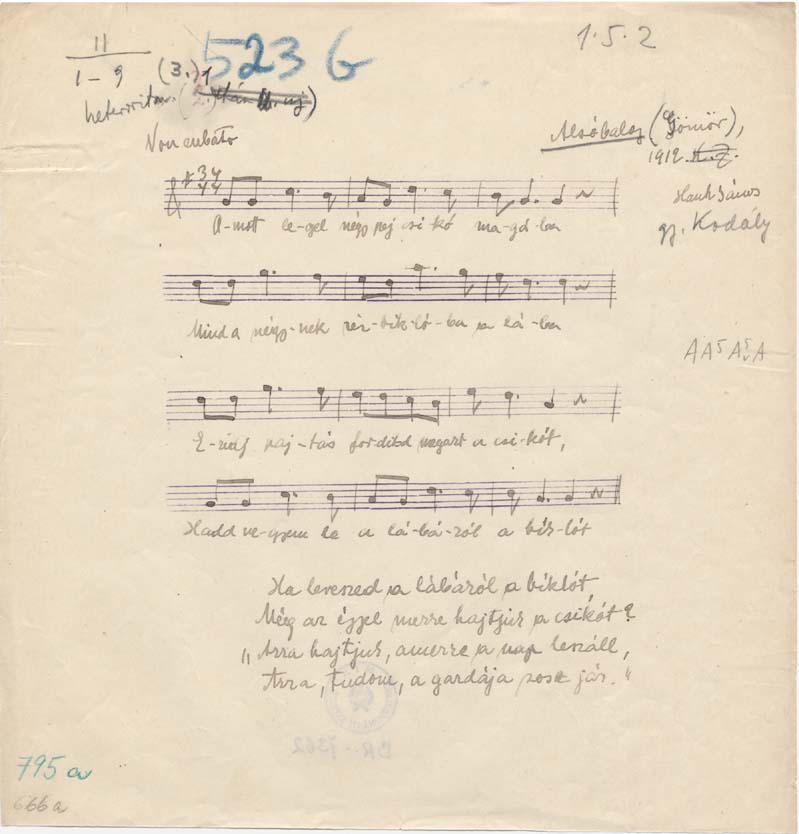 11
1-9 (3.) 1 523 G
1.5.2
heteroritm.
Non rubato
Alsóbalog (Gömör),
1912. K. Z.
Hank János
gy. Kodály
3/4 4/4
A-mott le-gel négy pej csi-kó ma-gá-ba
Mind a négy-nek réz-bik-ló-ba a lá-ba
AA⁵A⁵A
E-rigy paj-tás fordítsd megazt a csi-kót,
Hadd ve-gyem le a lá-bá-ról a bik-lót
Ha leveszed a lábáról a biklót,
Még az éjjel merre hajtjuk a csikót?
„Arra hajtjuk, amerre a nap leszáll,
Arra, tudom, a gardája rosz jár."
BR-7362
795 a
666 a